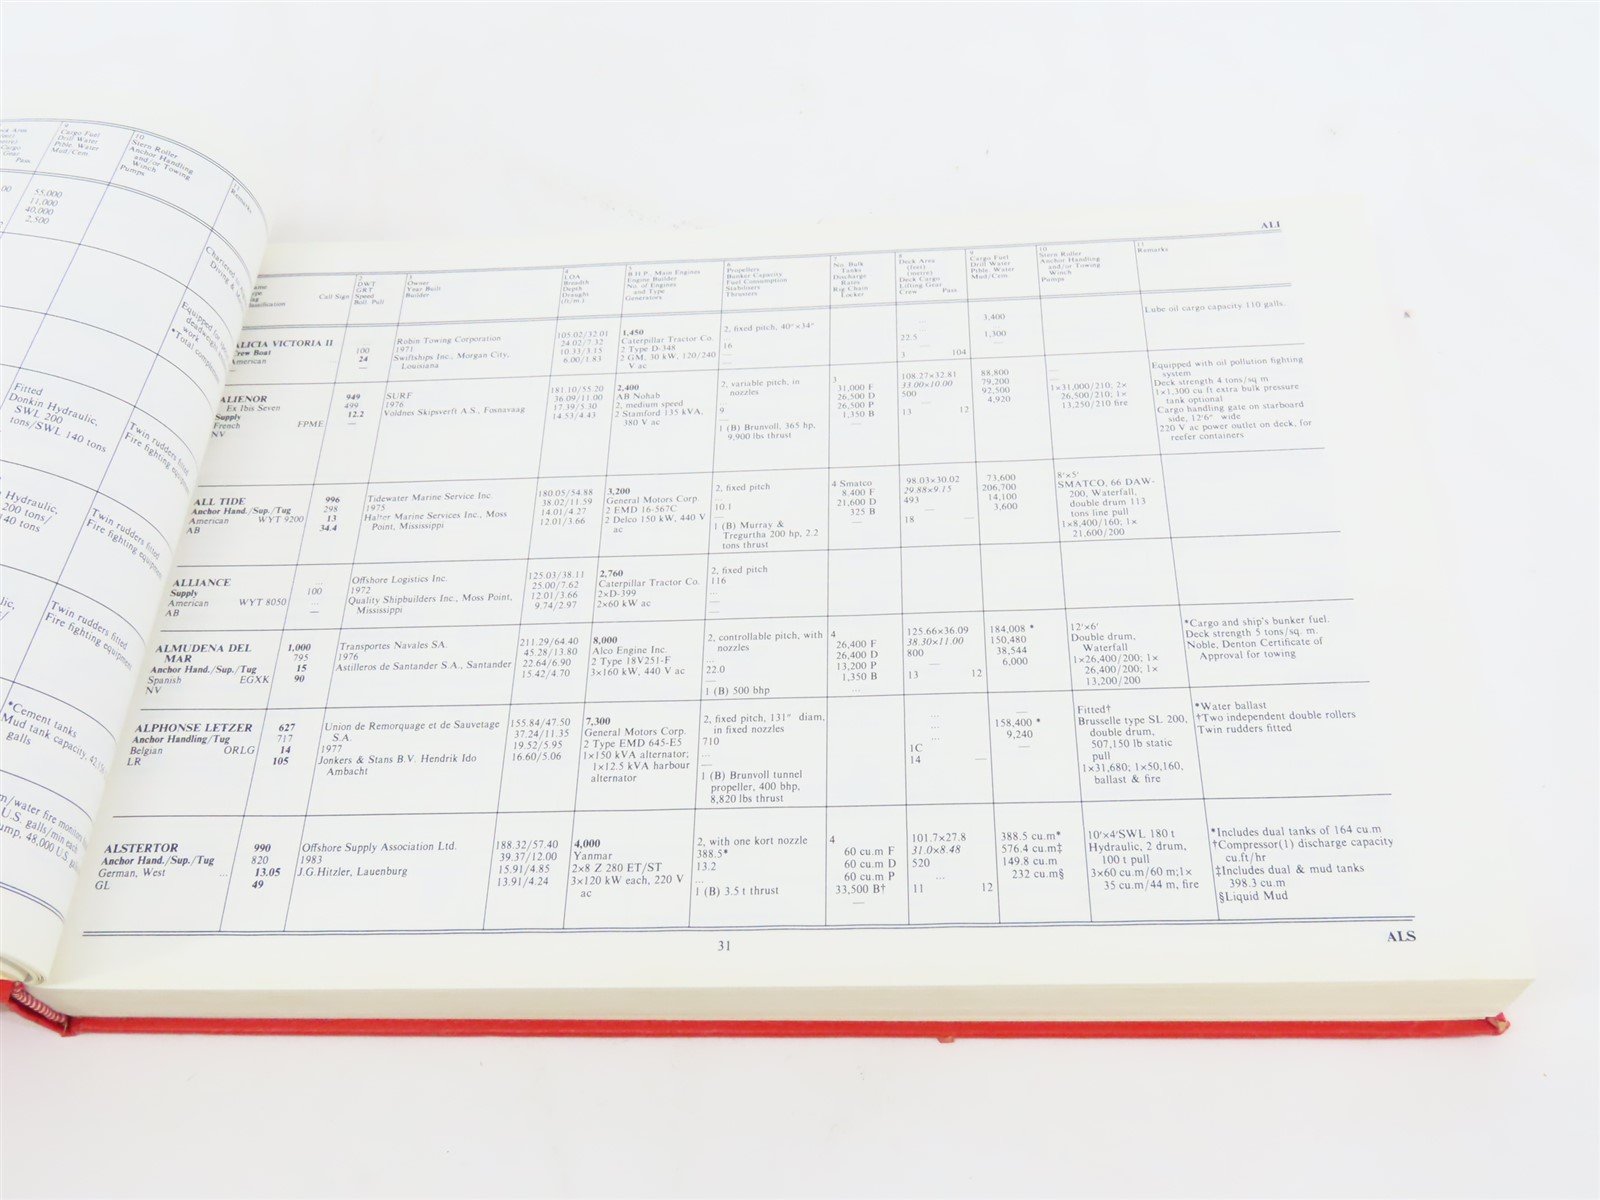 9
Cargo Fuel
Drill Water
Ptble. Water
Mud/Cem.
10
Stern Roller
Anchor Handling
and/or Towing
Winch
Pumps
11
Remarks
55,000
11,000
40,000
2,500
Fitted
Donkin Hydraulic,
SWL 200
tons/SWL 140 tons
Twin rudders fitted
Fire fighting
Hydraulic,
200 tons/
140 tons
Twin rudders fitted
Fire fighting
Twin rudders fitted
Fire fighting equipment
*Cement tanks
Mud tank capacity,
galls
ALI
Call Sign
2
DWT
GRT
Speed
Boll. Pull
3
Owner
Year Built
Builder
4
LOA
Breadth
Depth
Draught
(ft/m.)
5
B.H.P. Main Engines
Engine Builder
No. of Engines
and Type
Generators
6
Propellers
Bunker Capacity
Fuel Consumption
Stabilisers
Thrusters
7
No. Bulk
Tanks
Discharge
Rates
Rig Chain
Locker
8
Deck Area
(feet)
(metre)
Deck Cargo
Lifting Gear
Crew Pass.
9
Cargo Fuel
Drill Water
Ptble. Water
Mud/Cem.
10
Stern Roller
Anchor Handling
and/or Towing
Winch
Pumps
11
Remarks
ALICIA VICTORIA II
Crew Boat
American
100
24
—
Robin Towing Corporation
1971
Swiftships Inc., Morgan City,
Louisiana
105.02/32.01
24.02/7.32
10.33/3.15
6.00/1.83
1,450
Caterpillar Tractor Co.
2 Type D-348
2 GM, 30 kW, 120/240
V ac
2, fixed pitch, 40″×34″
16
—
—
...
...
22.5
—
3 104
3,400
1,300
—
Lube oil cargo capacity 110 galls.
ALIENOR
Ex Ibis Seven
Supply
French FPME
NV
949
499
12.2
—
SURF
1976
Voldnes Skipsverft A.S., Fosnavaag
181.10/55.20
36.09/11.00
17.39/5.30
14.53/4.43
2,400
AB Nohab
2, medium speed
2 Stamford 135 kVA,
380 V ac
2, variable pitch, in
nozzles
9
—
1 (B) Brunvoll, 365 hp,
9,900 lbs thrust
3
31,000 F
26,500 D
26,500 P
1,350 B
—
108.27×32.81
33.00×10.00
500
—
13 12
88,800
79,200
92,500
4,920
—
—
1×31,000/210; 2×
26,500/210; 1×
13,250/210 fire
Equipped with oil pollution fighting
system
Deck strength 4 tons/sq m
1×1,300 cu ft extra bulk pressure
tank optional
Cargo handling gate on starboard
side, 12′6″ wide
220 V ac power outlet on deck, for
reefer containers
ALL TIDE
Anchor Hand./Sup./Tug
American WYT 9200
AB
996
298
13
34.4
Tidewater Marine Service Inc.
1975
Halter Marine Services Inc., Moss
Point, Mississippi
180.05/54.88
38.02/11.59
14.01/4.27
12.01/3.66
3,200
General Motors Corp.
2 EMD 16-567C
2 Delco 150 kW, 440 V
ac
2, fixed pitch
10.1
—
1 (B) Murray &
Tregurtha 200 hp, 2.2
tons thrust
4 Smatco
8,400 F
21,600 D
325 B
—
98.03×30.02
29.88×9.15
493
—
18 —
73,600
206,700
14,100
3,600
8′×5′
SMATCO, 66 DAW-
200, Waterfall,
double drum 113
tons line pull
1×8,400/160; 1×
21,600/200
ALLIANCE
Supply
American WYT 8050
AB
...
100
...
—
Offshore Logistics Inc.
1972
Quality Shipbuilders Inc., Moss Point,
Mississippi
125.03/38.11
25.00/7.62
12.01/3.66
9.74/2.97
2,760
Caterpillar Tractor Co.
2×D-399
2×60 kW ac
2, fixed pitch
116
...
—
—
ALMUDENA DEL
MAR
Anchor Hand./Sup./Tug
Spanish EGXK
NV
1,000
795
15
90
Transportes Navales SA.
1976
Astilleros de Santander S.A., Santander
211.29/64.40
45.28/13.80
22.64/6.90
15.42/4.70
8,000
Alco Engine Inc.
2 Type 18V251-F
3×160 kW, 440 V ac
2, controllable pitch, with
nozzles
...
22.0
—
1 (B) 500 bhp
4
26,400 F
26,400 D
13,200 P
1,350 B
...
125.66×36.09
38.30×11.00
800
—
13 12
184,008 *
150,480
38,544
6,000
12′×6′
Double drum,
Waterfall
1×26,400/200; 1×
26,400/200; 1×
13,200/200
*Cargo and ship's bunker fuel.
Deck strength 5 tons/sq. m.
Noble, Denton Certificate of
Approval for towing
ALPHONSE LETZER
Anchor Handling/Tug
Belgian ORLG
LR
627
717
14
105
Union de Remorquage et de Sauvetage
S.A.
1977
Jonkers & Stans B.V. Hendrik Ido
Ambacht
155.84/47.50
37.24/11.35
19.52/5.95
16.60/5.06
7,300
General Motors Corp.
2 Type EMD 645-E5
1×150 kVA alternator;
1×12.5 kVA harbour
alternator
2, fixed pitch, 131″ diam,
in fixed nozzles
710
...
—
1 (B) Brunvoll tunnel
propeller, 400 bhp,
8,820 lbs thrust
...
...
...
1C
14 —
—
158,400 *
9,240
—
Fitted†
Brusselle type SL 200,
double drum,
507,150 lb static
pull
1×31,680; 1×50,160,
ballast & fire
*Water ballast
†Two independent double rollers
Twin rudders fitted
ALSTERTOR
Anchor Hand./Sup./Tug
German, West ...
GL
990
820
13.05
49
Offshore Supply Association Ltd.
1983
J.G.Hitzler, Lauenburg
188.32/57.40
39.37/12.00
15.91/4.85
13.91/4.24
4,000
Yanmar
2×8 Z 280 ET/ST
3×120 kW each, 220 V
ac
2, with one kort nozzle
388.5*
13.2
...
1 (B) 3.5 t thrust
4
60 cu.m F
60 cu.m D
60 cu.m P
33,500 B†
—
101.7×27.8
31.0×8.48
520
11 12
388.5 cu.m*
576.4 cu.m‡
149.8 cu.m
232 cu.m§
10′×4′SWL 180 t
Hydraulic, 2 drum,
100 t pull
3×60 cu.m/60 m;1×
35 cu.m/44 m, fire
*Includes dual tanks of 164 cu.m
†Compressor(1) discharge capacity
cu.ft/hr
‡Includes dual & mud tanks
398.3 cu.m
§Liquid Mud
31
ALS